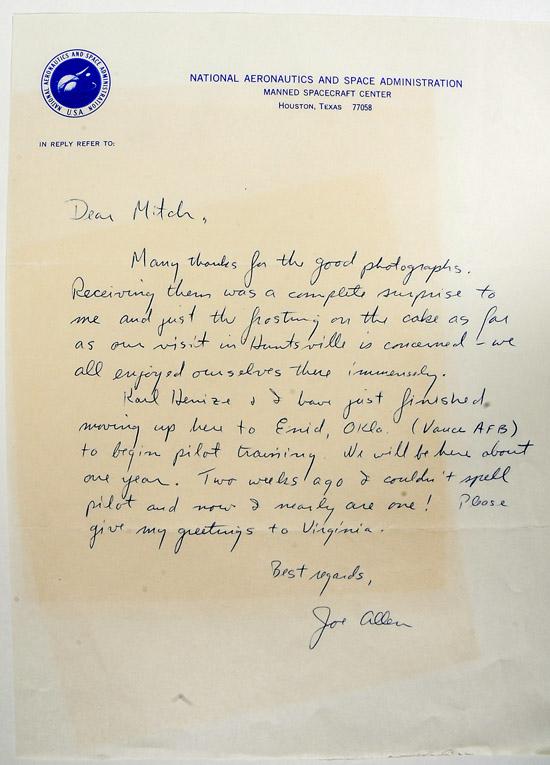 NATIONAL AERONAUTICS AND SPACE ADMINISTRATION
U.S.A.
NATIONAL AERONAUTICS AND SPACE ADMINISTRATION
MANNED SPACECRAFT CENTER
HOUSTON, TEXAS 77058
IN REPLY REFER TO:
Dear Mitch,
Many thanks for the good photographs.
Receiving them was a complete surprise to
me and just the frosting on the cake as far
as our visit in Huntsville is concerned – we
all enjoyed ourselves there immensely.
Karl Henize & I have just finished
moving up here to Enid, Okla. (Vance AFB)
to begin pilot training. We will be here about
one year. Two weeks ago I couldn't spell
pilot and now I nearly are one! Please
give my greetings to Virginia.
Best regards,
Joe Allen